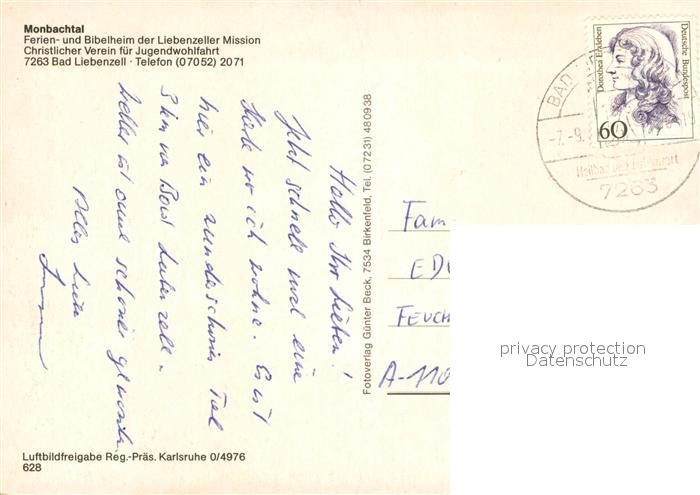 Monbachtal
Ferien- und Bibelheim der Liebenzeller Mission
Christlicher Verein für Jugendwohlfahrt
7263 Bad Liebenzell · Telefon (07052) 2071
Hallo Ihr Lieben!
Jetzt schnell mal eine
Karte wo ich wohne. Es ist
hier ein wunderschönes Tal
3 km von Bad Liebenzell.
Wetter ist auch schöner geworden
Alles Liebe
Luftbildfreigabe Reg.-Präs. Karlsruhe 0/4976
628
Fotoverlag Günter Beck, 7534 Birkenfeld, Tel. (07231) 480938
Dorothea Erxleben
Deutsche Bundespost
60
BAD
-7.-9.
7263
Fam
FEUCH
A-110
privacy protection
Datenschutz